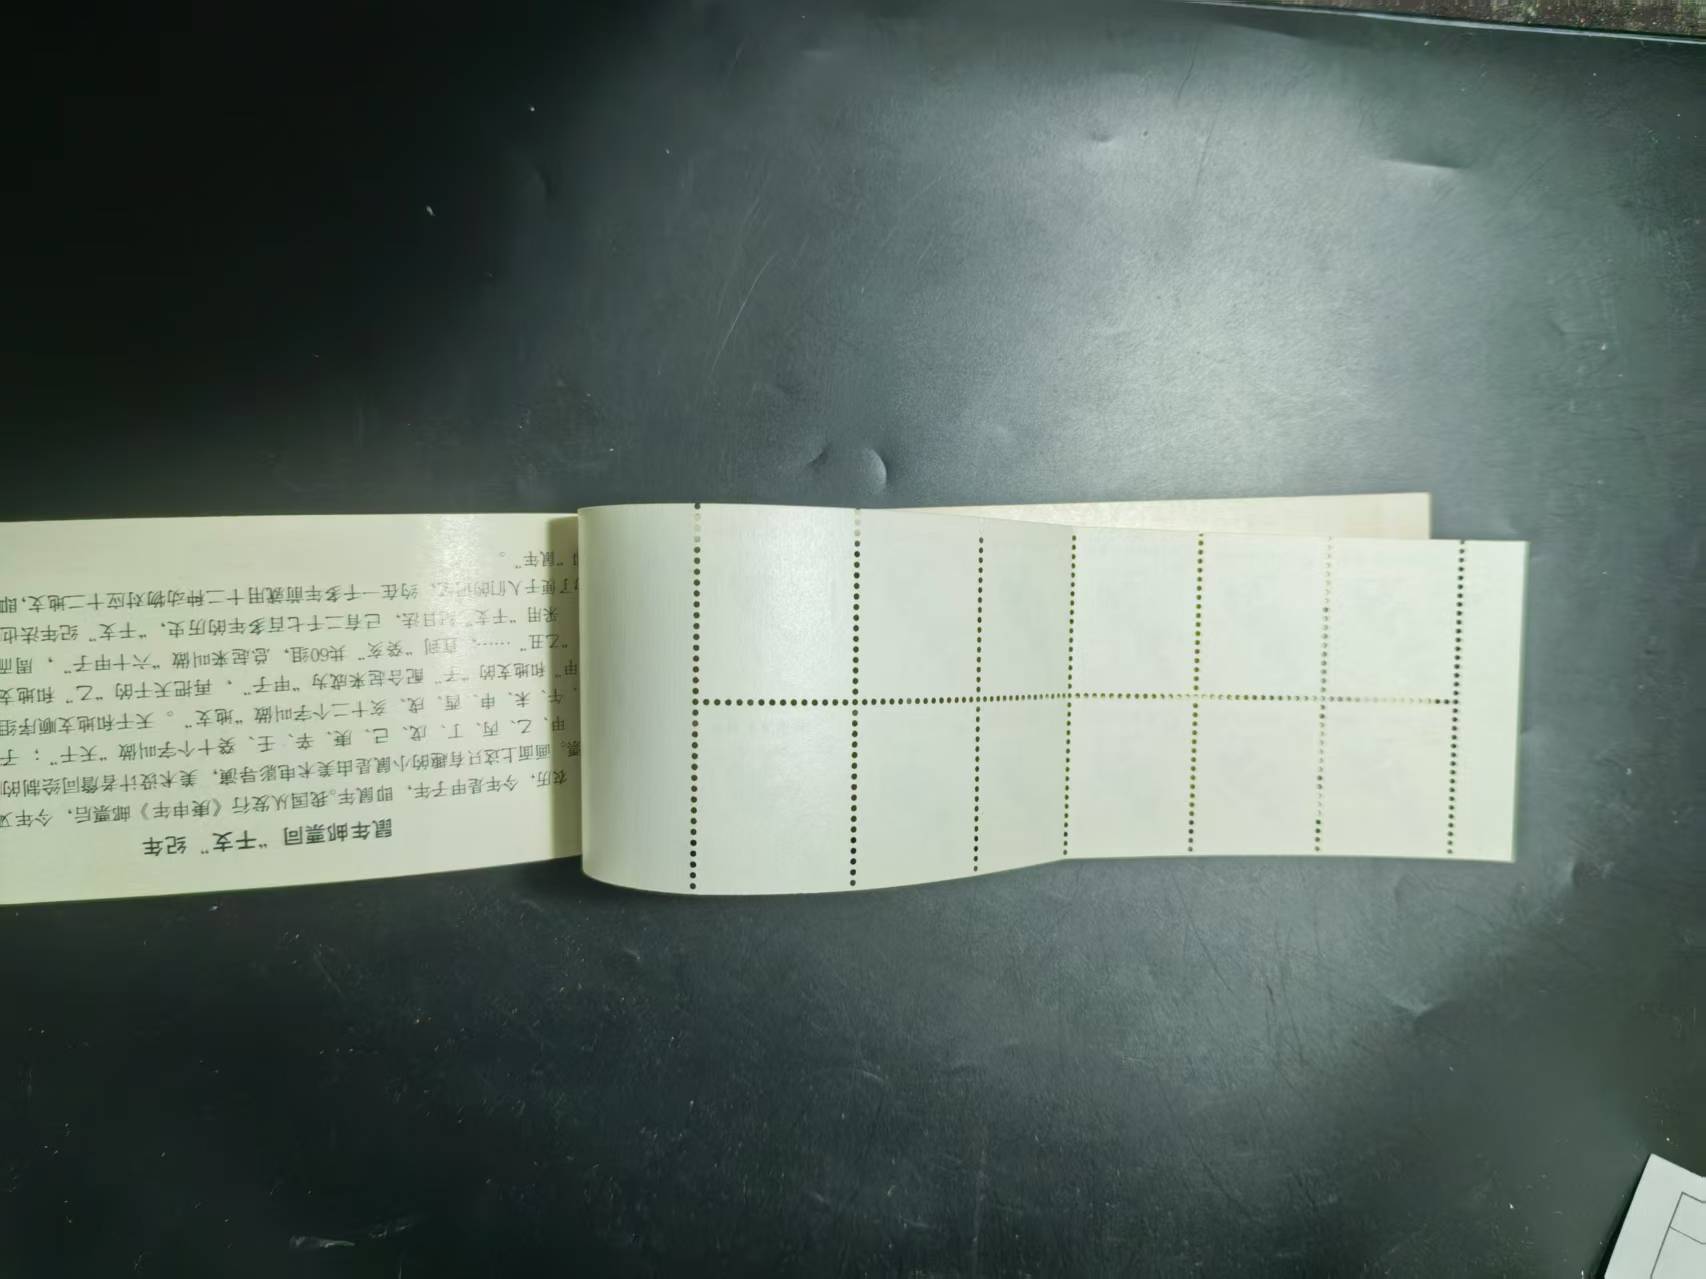 鼠年邮票同“干支”纪年
农历，今年是甲子年，即鼠年。我国从发行《庚申年》邮票后，今年又
票。画面上这只有趣的小鼠是由美术电影导演，美术设计者詹同绘制的
甲、乙、丙、丁、戊、己、庚、辛、壬、癸十个字叫做“天干”；子
、午、未、申、酉、戌、亥十二个字叫做“地支”。天干和地支顺序组
甲”和地支的“子”配合起来成为“甲子”，再把天干的“乙”和地支
“乙丑”……，直到“癸亥”共60组，总起来叫做“六十甲子”，周而
采用“干支”纪日法，已有二千七百多年的历史，“干支”纪年法也
了便于人们的记忆，约在一千多年前就用十二种动物对应十二地支，即
“鼠年”。